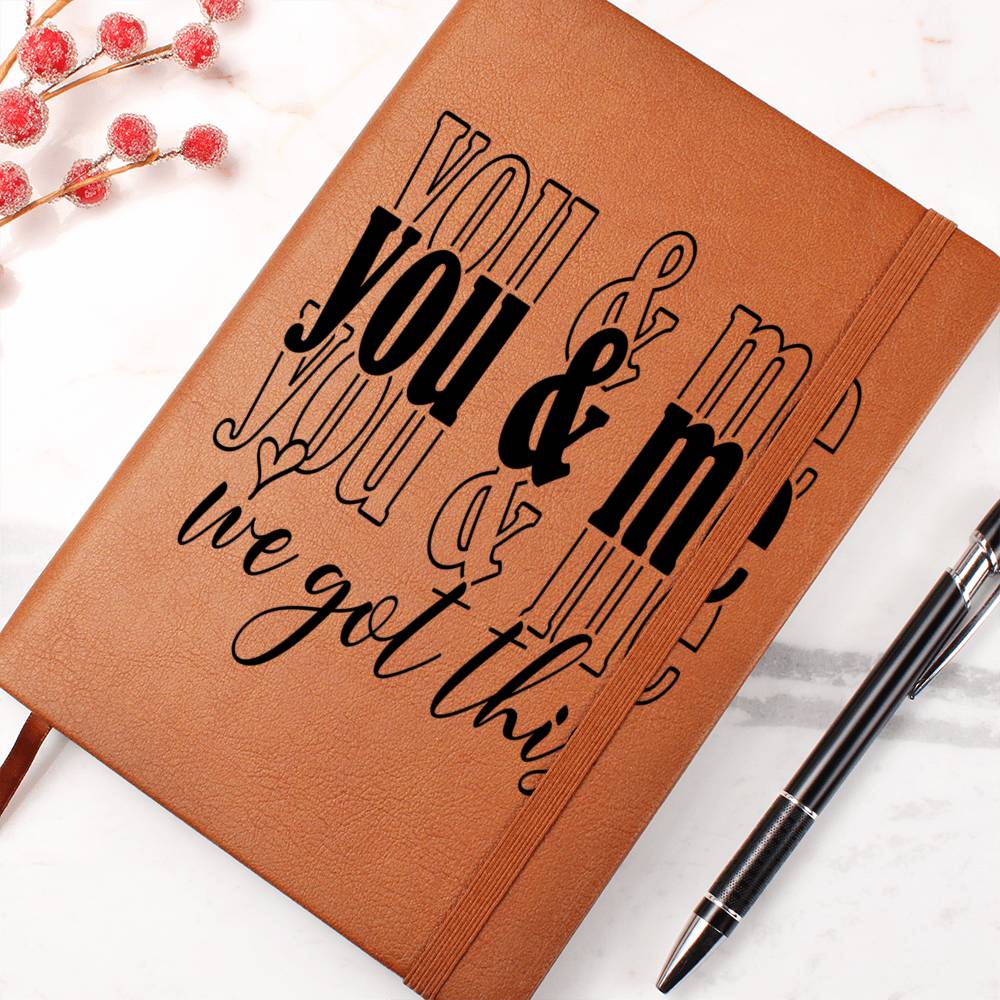 you & me
you & me
you & me
we got this